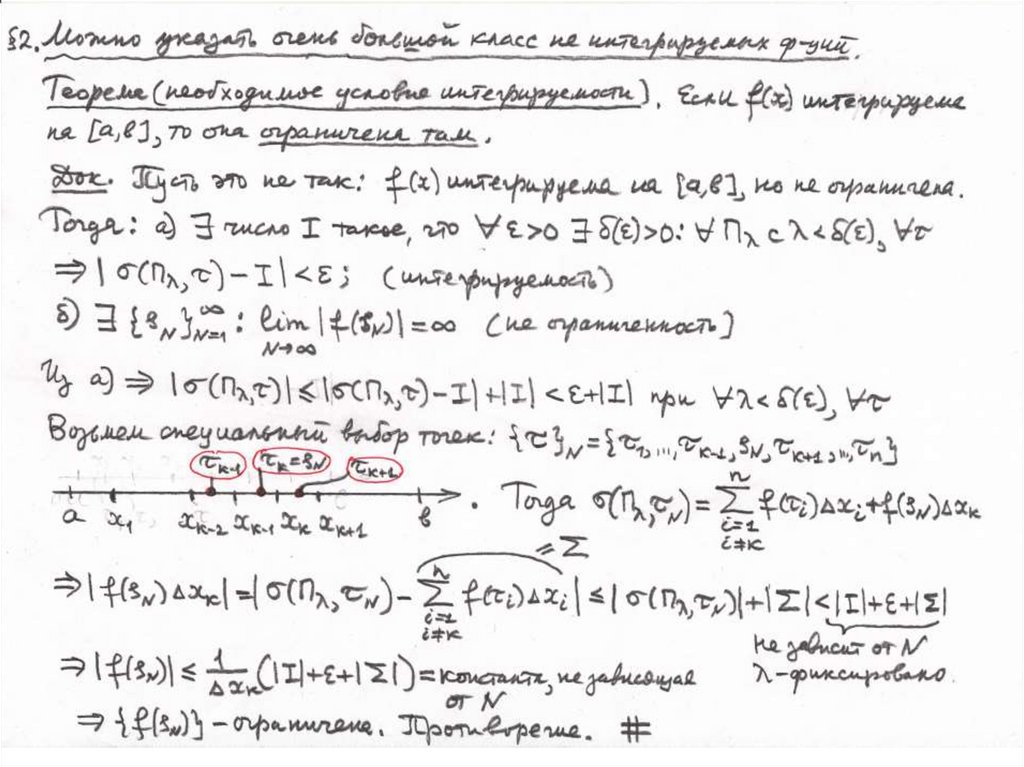 §2. Можно указать очень большой класс не интегрируемых ф-ций.
Теорема (необходимое условие интегрируемости). Если f(x) интегрируема
на [a,b], то она ограничена там.
Док. Пусть это не так: f(x) интегрируема на [a,b], но не ограничена.
Тогда: а) ∃ число I такое, что ∀ ε>0 ∃ δ(ε)>0: ∀ Πλ с λ<δ(ε), ∀τ
⇒ |σ(Πλ,τ) − I| < ε; (интегрируемость)
б) ∃ {ξN}∞N=1 : lim N→∞ |f(ξN)| = ∞ (не ограниченность)
Из а) ⇒ |σ(Πλ,τ)| ≤ |σ(Πλ,τ) − I| + |I| < ε + |I| при ∀λ<δ(ε), ∀τ
Возьмем специальный выбор точек: {τ}N = {τ1,...,τk-1, ξN, τk+1,...,τn}
τk-1 τk=ξN τk+1
a x1 xk-2 xk-1 xk xk+1 b . Тогда σ(Πλ,τN) = n Σ i=1 i≠k f(τi)Δxi + f(ξN)Δxk
= Σ
⇒ |f(ξN)Δxk| = |σ(Πλ,τN) − n Σ i=1 i≠k f(τi)Δxi| ≤ |σ(Πλ,τN)| + |Σ| < |I| + ε + |Σ|
не зависит от N
λ-фиксировано.
⇒ |f(ξN)| ≤ 1/Δxk (|I| + ε + |Σ|) = константа, не зависящая
от N
⇒ {f(ξN)} - ограничена. Противоречие. #